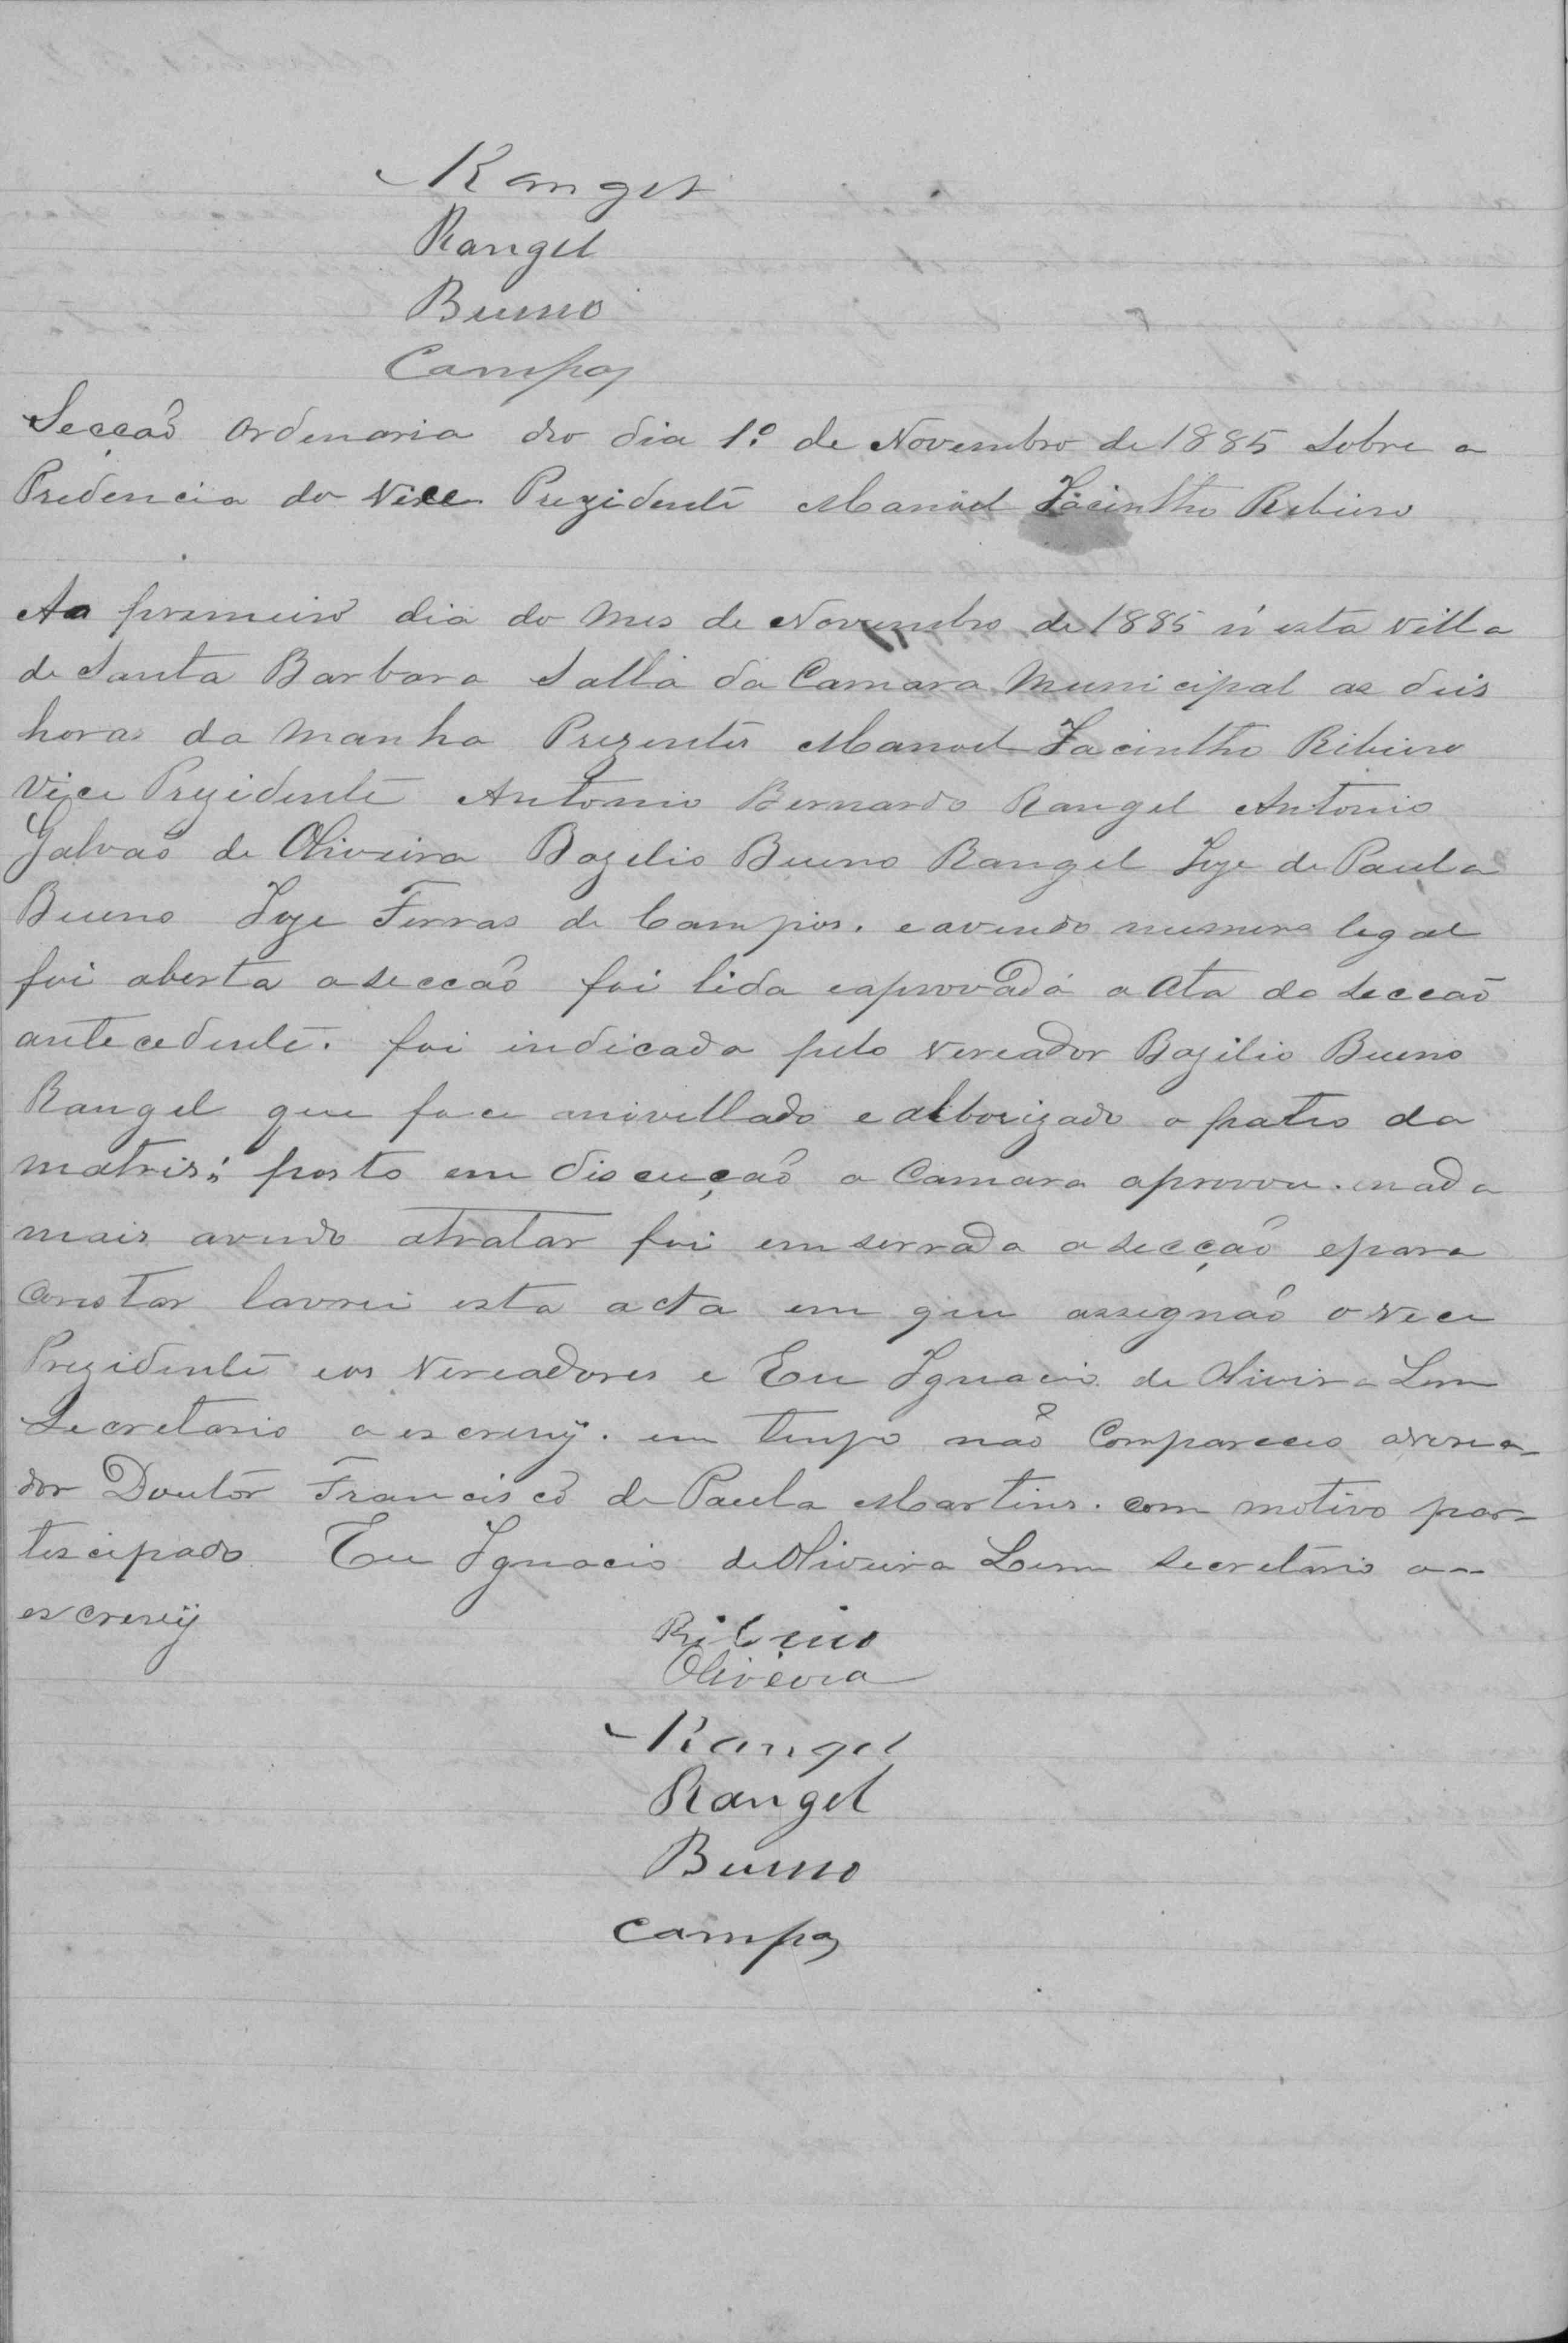 Rangel
Rangel
Bueno
Campos
Secção ordenaria do dia 1º de Novembro de 1885 sobre a
Predencia do Vice Prezidente Manoel Jacintho Ribeiro
Ao primeiro dia do mes de Novembro de 1885 n'esta villa
de Santa Barbara Salla da Camara Municipal as deis
horas da manha Prezentes Manoel Jacintho Ribeiro
Vice Prezidente Antonio Bernardo Rangel Antonio
Galvaõ de Oliveira Bazelio Bueno Rangel Joze de Paula
Bueno Joze Ferras de Campos. e avendo numero legal
foi aberta a secçaõ foi lida e aprovada a ata da secçaõ
antecedente. foi indicado pelo vereador Bazilio Bueno
Rangel que foce anivellado e alborizado o pateo da
matris; posto em discuçaõ a Camara aprovou. nada
mais avendo atratar foi emserrada a secçaõ e para
constar lavrei esta acta em que assegnaõ o vece
Prezidente e os Vereadores e Eu Ignacio de Oliveira Lem
Secretario a escrevÿ. em tempo naõ Compareceo o verea-
dor Doutor Francisco de Paula Martins. com motivo par-
tescipado Eu Ignacio de Oliveira Lem secretario a
escrevÿ
Ribeiro
Oliveira
Rangel
Rangel
Bueno
Campos